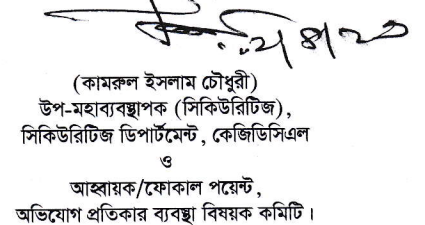 (কামরুল ইসলাম চৌধুরী)
উপ-মহাব্যবস্থাপক (সিকিউরিটিজ),
সিকিউরিটিজ ডিপার্টমেন্ট, কেজিডিসিএল
ও
আহ্বায়ক/ফোকাল পয়েন্ট,
অভিযোগ প্রতিকার ব্যবস্থা বিষয়ক কমিটি।